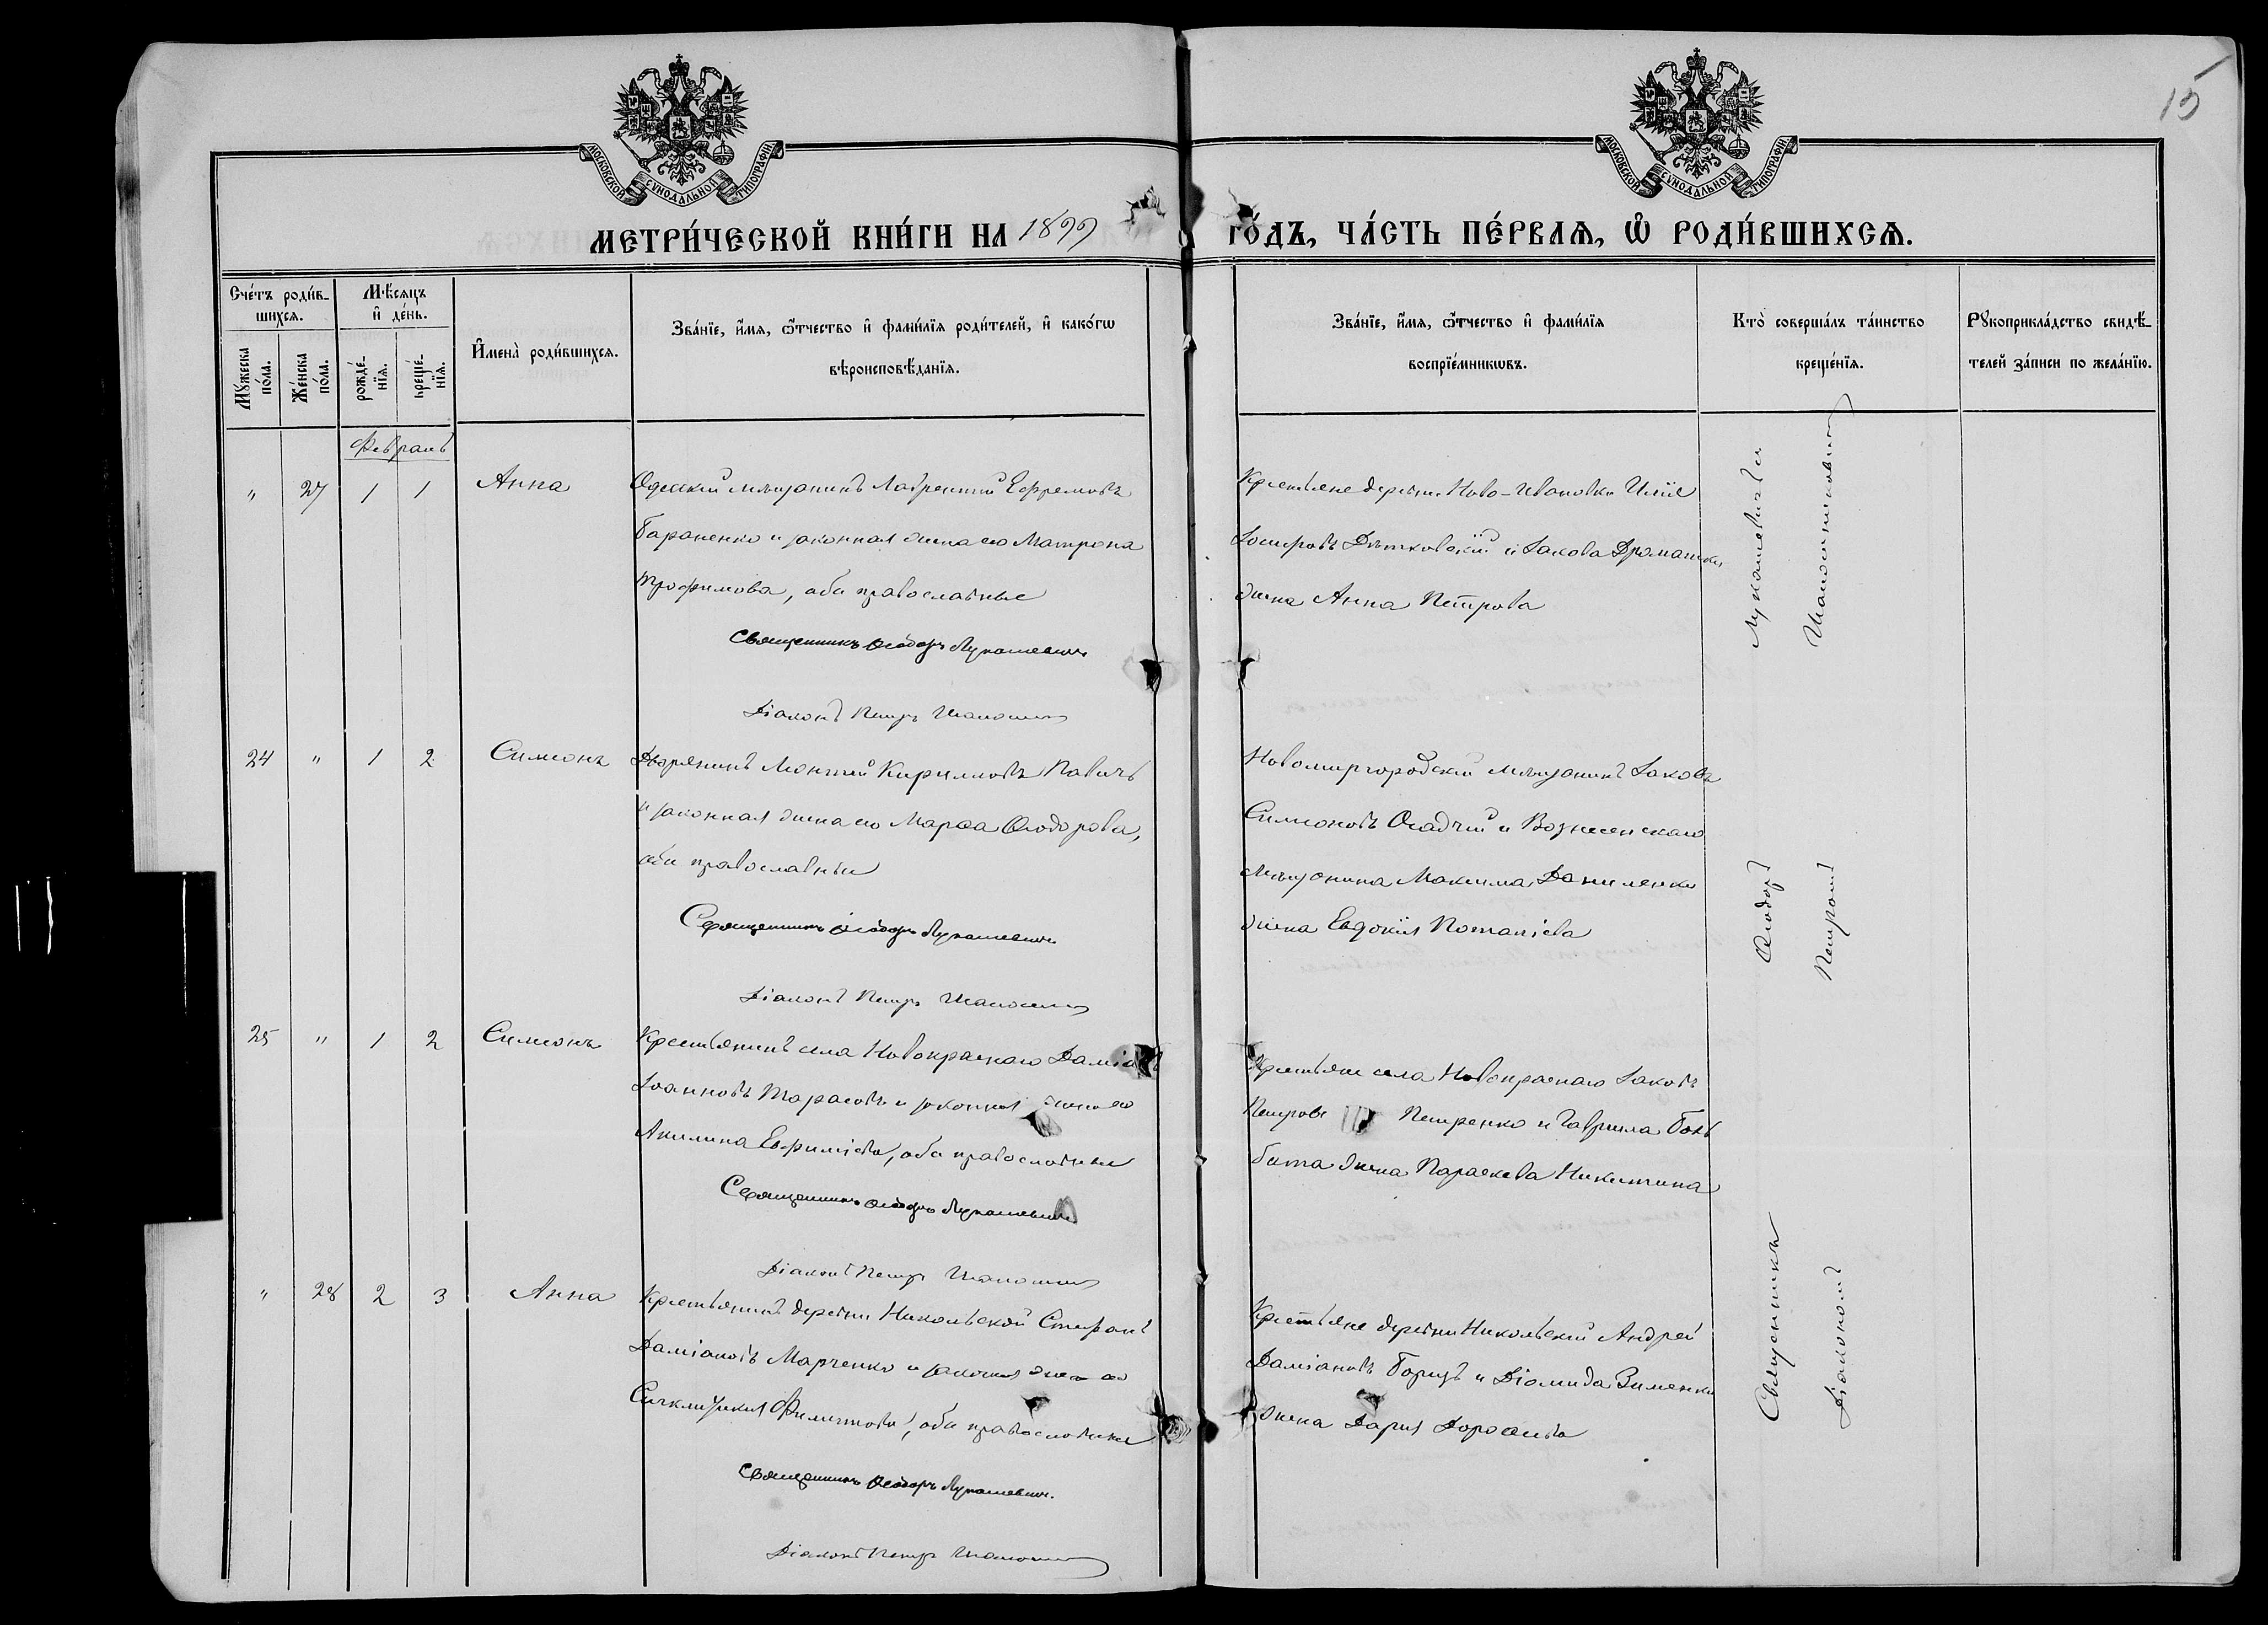 15
МОСКОВСКОЙ СУНОДАЛЬНОЙ ТИПОГРАФІИ
МОСКОВСКОЙ СУНОДАЛЬНОЙ ТИПОГРАФІИ
МЕТРИ́ЧЕСКОЙ КНИ́ГИ НА 1899 ГО́ДЪ, ЧА́СТЬ ПЕ́РВАѦ, Ѡ РОДИ́ВШИХСѦ.
Сче́тъ роди́в-
шихсѧ.
Мꙋ́жеска
по́ла.
Же́нска
по́ла.
Мѣ́сѧцъ
и҆ де́нь.
рожде́-
нїѧ.
креще́-
нїѧ.
И҆мена̀ роди́вшихсѧ.
Зва́нїе, и҆́мѧ, ѻ҆́тчество и҆ фами́лїѧ роди́телей, и҆ како́гѡ
вѣроисповѣ́данїѧ.
Зва́нїе, и҆́мѧ, ѻ҆́тчество и҆ фами́лїѧ
воспрїе́мникѡвъ.
Кто̀ соверша́лъ та́инство
креще́нїѧ.
Рꙋкоприкла́дство свидѣ́-
телей за́писи по жела́нїю.
Февраль
" 27 1 1 Анна
Одесскій мѣщанинъ Лаврентій Ефремовъ
Бараненко и законная жена его Матрона
Трофимова, оба православные
Священникъ Ѳеодоръ Лукашевич
Діаконъ Петръ
Крестьяне деревни Ново-Ивановки Илія
Іосифовъ и Іакова
жена Анна Петрова
24 " 1 2 Симеонъ
Дворянинъ Леонтій Кириловъ Павичъ
и законная жена его Марѳа Ѳеодорова,
оба православные
Священникъ Ѳеодоръ Лукашевич
Діаконъ Петръ
Новомиргородскій мѣщанинъ Іаковъ
Симеоновъ Осадчій и Вознесенскаго
мѣщанина Максима Даниленко
жена Евдокія Потапіева
25 " 1 2 Симеонъ
Крестьянинъ села Новокраснаго Даміанъ
Іоанновъ Тарасовъ и законная жена его
Акилина Евфиміева, оба православные
Священникъ Ѳеодоръ Лукашевич
Діаконъ Петръ
Крестьяне села Новокраснаго Іаковъ
Петровъ Петренко и Гавріила
жена Параскева Никитина
" 28 2 3 Анна
Крестьянинъ деревни Никольской Стефанъ
Даміановъ Марченко и законная жена его
Синклитикія Филиппова, оба православные
Священникъ Ѳеодоръ Лукашевич
Діаконъ Петръ
Крестьяне деревни Никольской Андрей
Даміановъ Борецъ и Діомида Зименко
жена Дарія Дороѳеева
Священникъ Ѳеодоръ Лукашевичъ съ
Діакономъ Петромъ